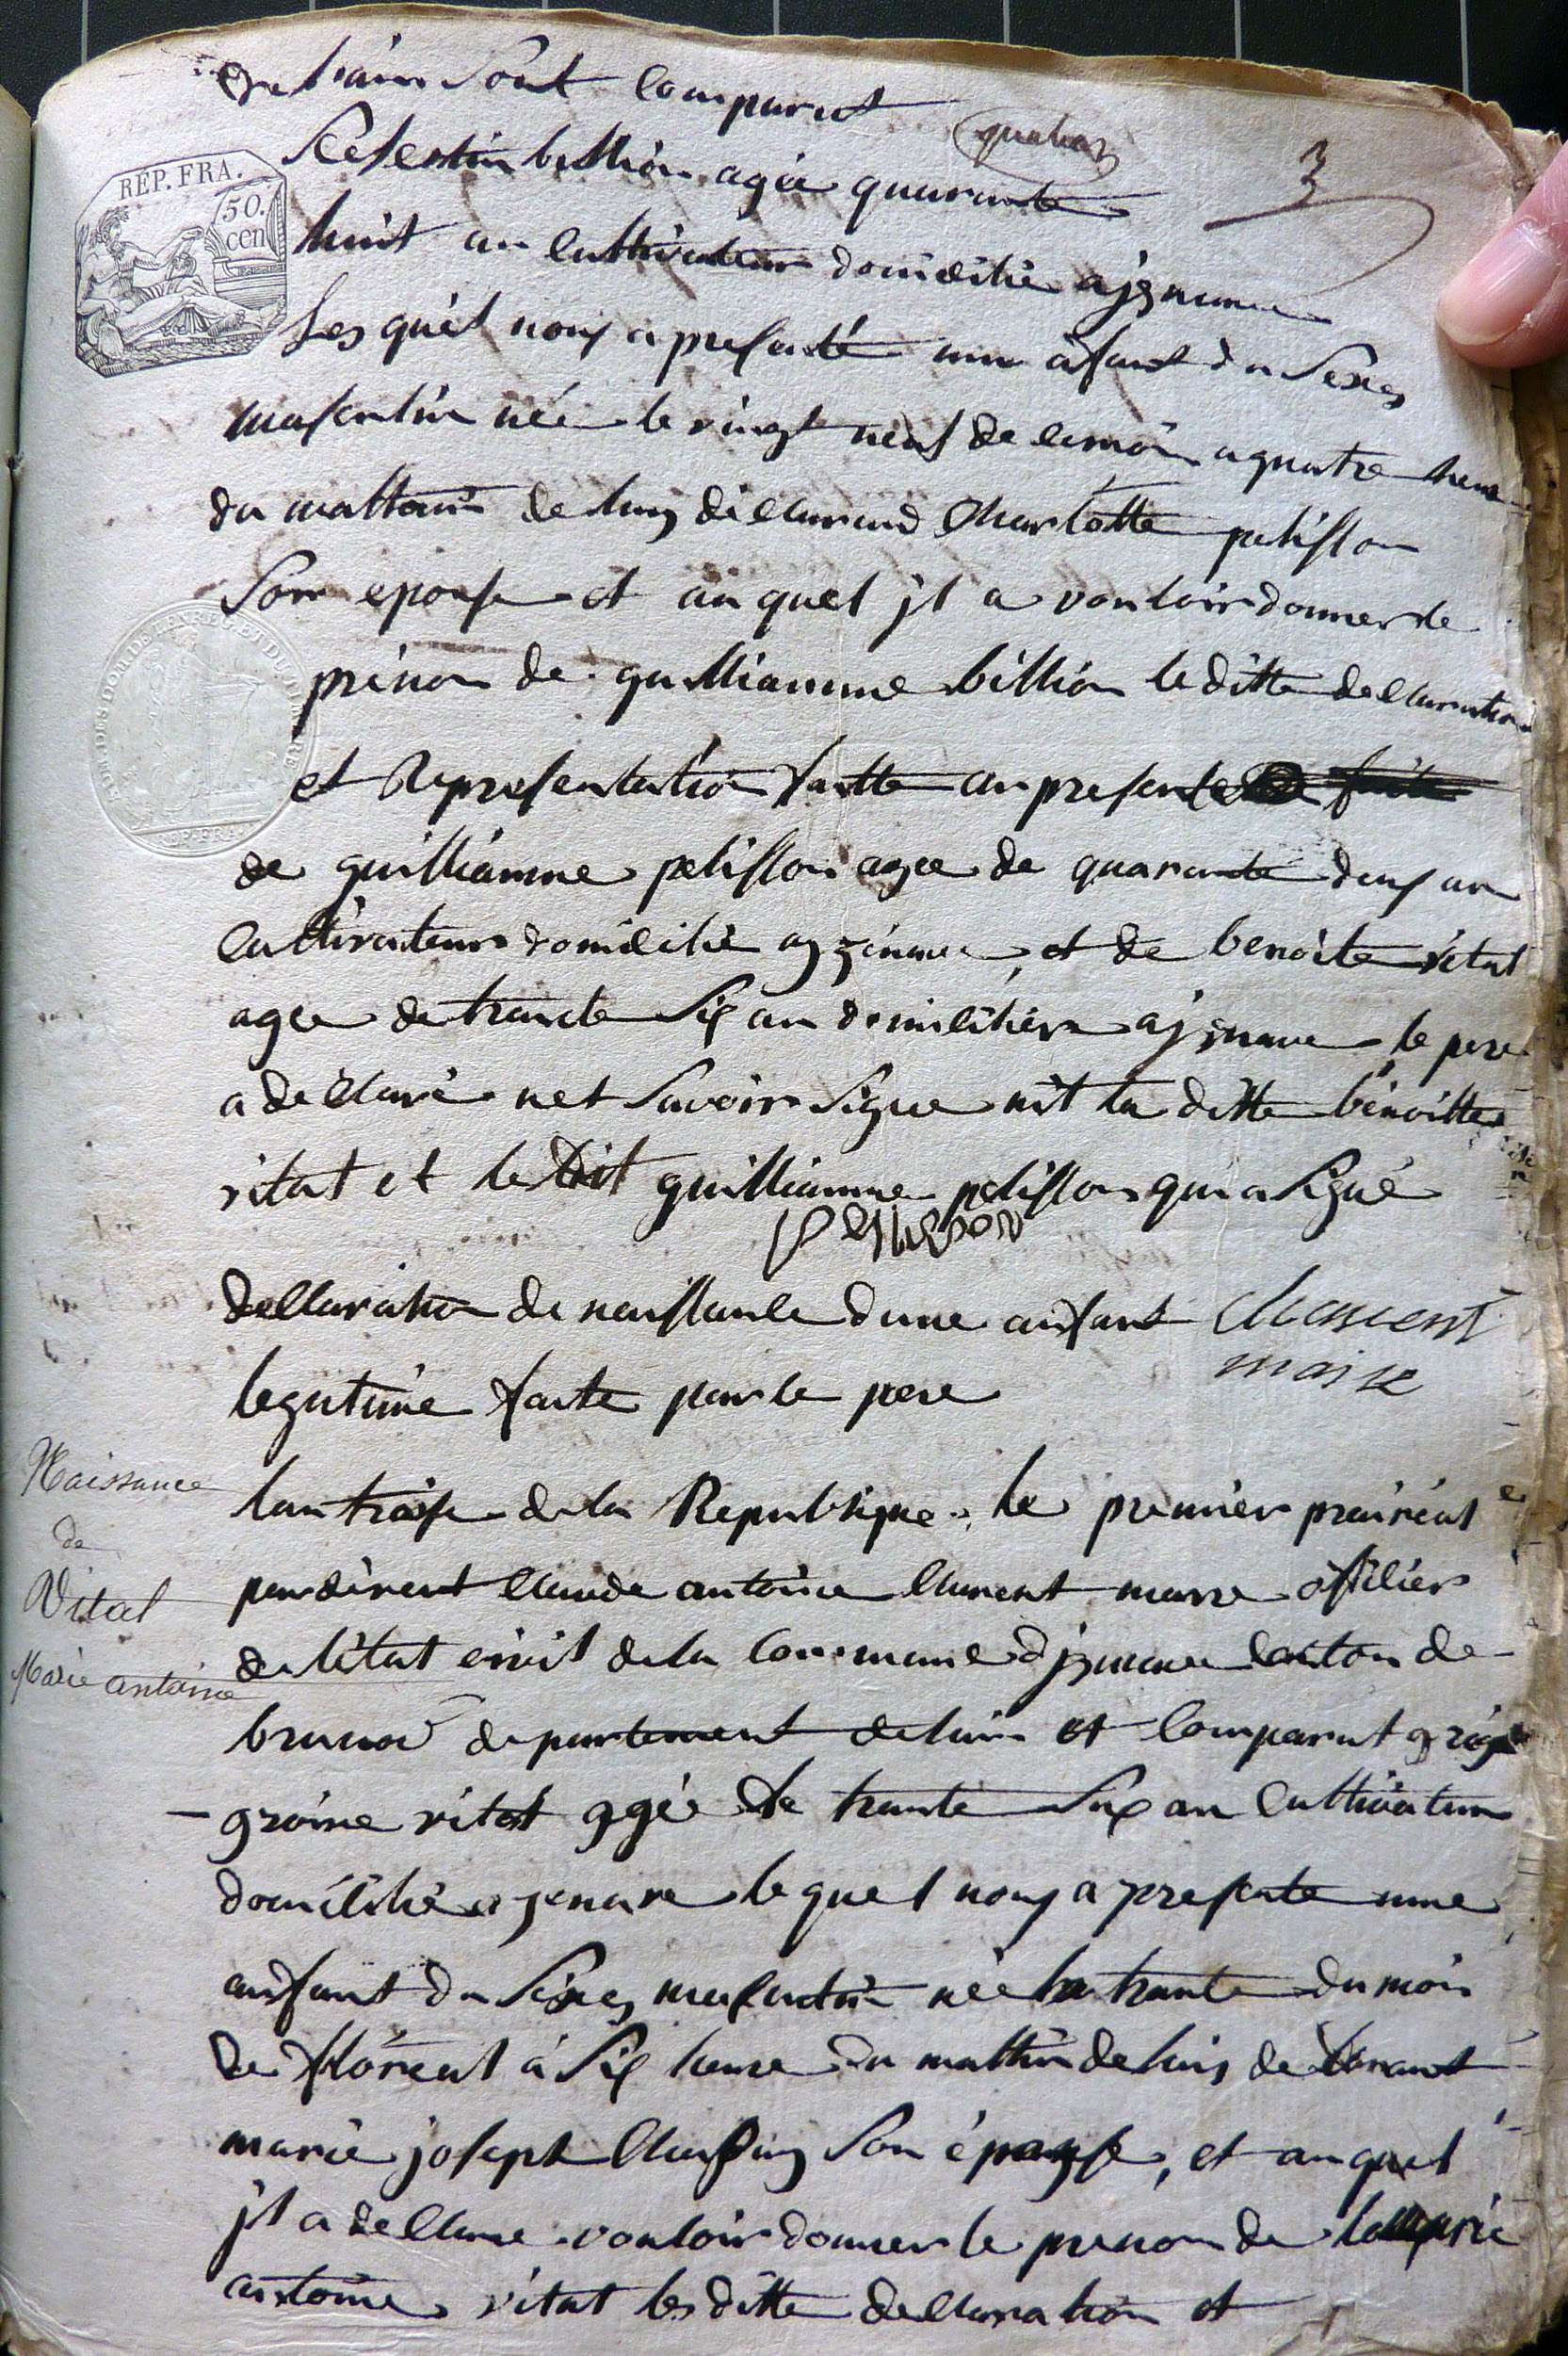 de l'ain sont comparut
selestin billion agée quarante
huit an cultivateur domicilié a jgnunee
Les quel nous a presanté une anfant du sexes
masculin née le vingt neuf de ce mois a quatre heure
du mattain de luy déclarand Charlotte pelisson
Son epouse et au quel jl a vouloir donner le
prénon de guilliaumme billion le ditte declaration
et Representation faitte an presente
de guilliaumme pelisson agee de quarante deux an
Cultivateur domicilié et de benoite vital
agee de trante Six an domiciliée le pere
a declaré net savoir signe nit la ditte benoitte
vital et le dit guilliaumme pelisson qui a signé
Pelisson
declaration de naissance dune anfant
legitime faite par le pere
Clement
maire
Naissance
de
Vital
Marie antoine
lan treise de la Republique le premier prairéal
pardevent claude antoine clement marre officier
de létat civil de la commune canton de
departement de lain et comparut grég
groine vital agée de trante Six an Cultivateur
domicilié a le quel nous a presente une
anfant du Sexes masculin née le trante du mois
de floréal à Six heure du mattin de luis de clarant
marie joseph son épouse, et au quel
jl a declarre vouloir donner le prenon de marie
antoine vital les ditte declaration et
REP. FRA.
50.
cen
3